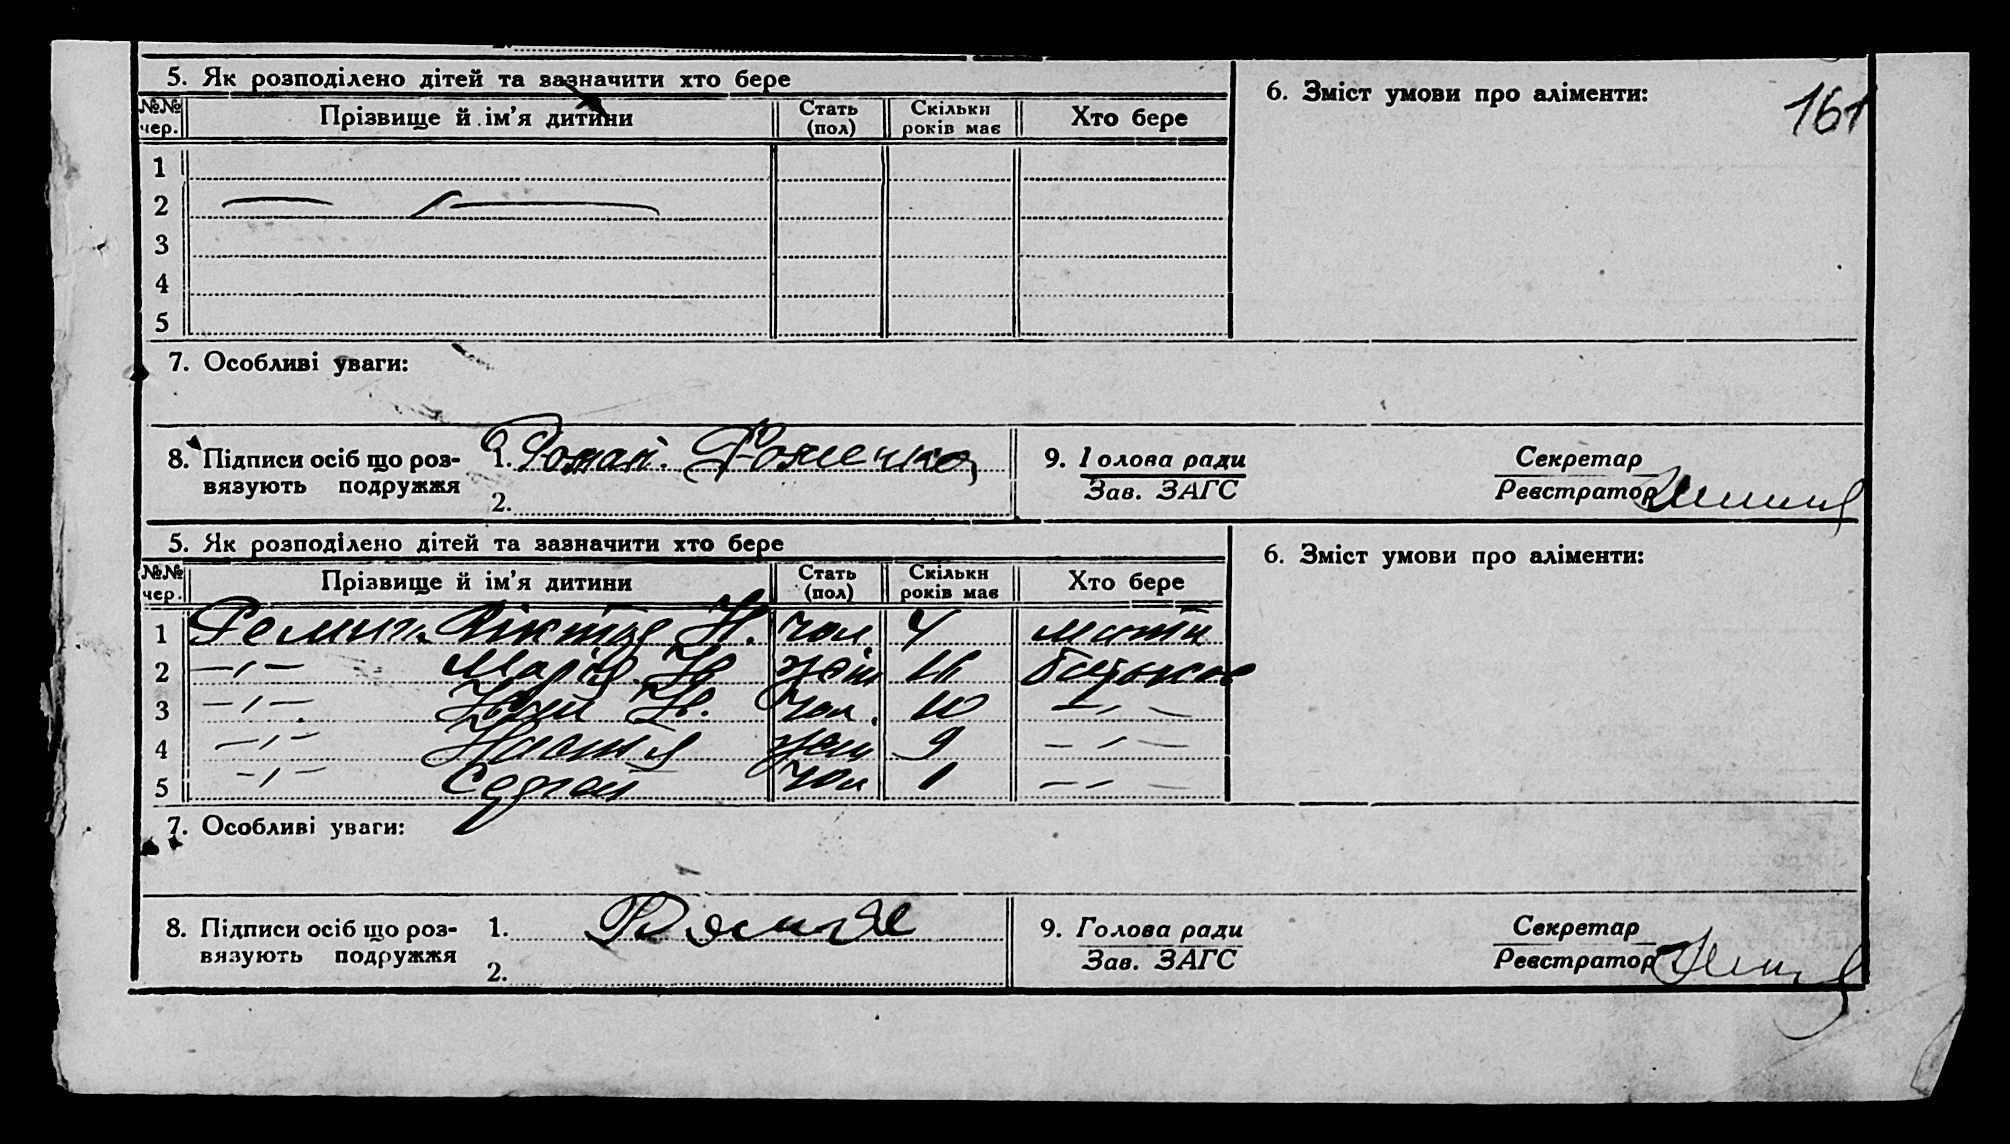 161
5. Як розподілено дітей та зазначити хто бере
№№ чер. Прізвище й ім’я дитини Стать (пол) Скільки років має Хто бере
1
2
3
4
5
6. Зміст умови про аліменти:
7. Особливі уваги:
8. Підписи осіб що роз-
вязують подружжя
1. Роман
2.
9. Голова ради
Зав. ЗАГС
Секретар
Реєстратор
5. Як розподілено дітей та зазначити хто бере
№№ чер. Прізвище й ім’я дитини Стать (пол) Скільки років має Хто бере
1 Віктор Н. чол 4 мати
2 —ı— Марія жін батько
3 —ı— Юрій чол. 10 —ı—
4 —ı— Настя жін 9 —ı—
5 —ı— Сергей чол 1 —ı—
6. Зміст умови про аліменти:
7. Особливі уваги:
8. Підписи осіб що роз-
вязують подружжя
1.
2.
9. Голова ради
Зав. ЗАГС
Секретар
Реєстратор